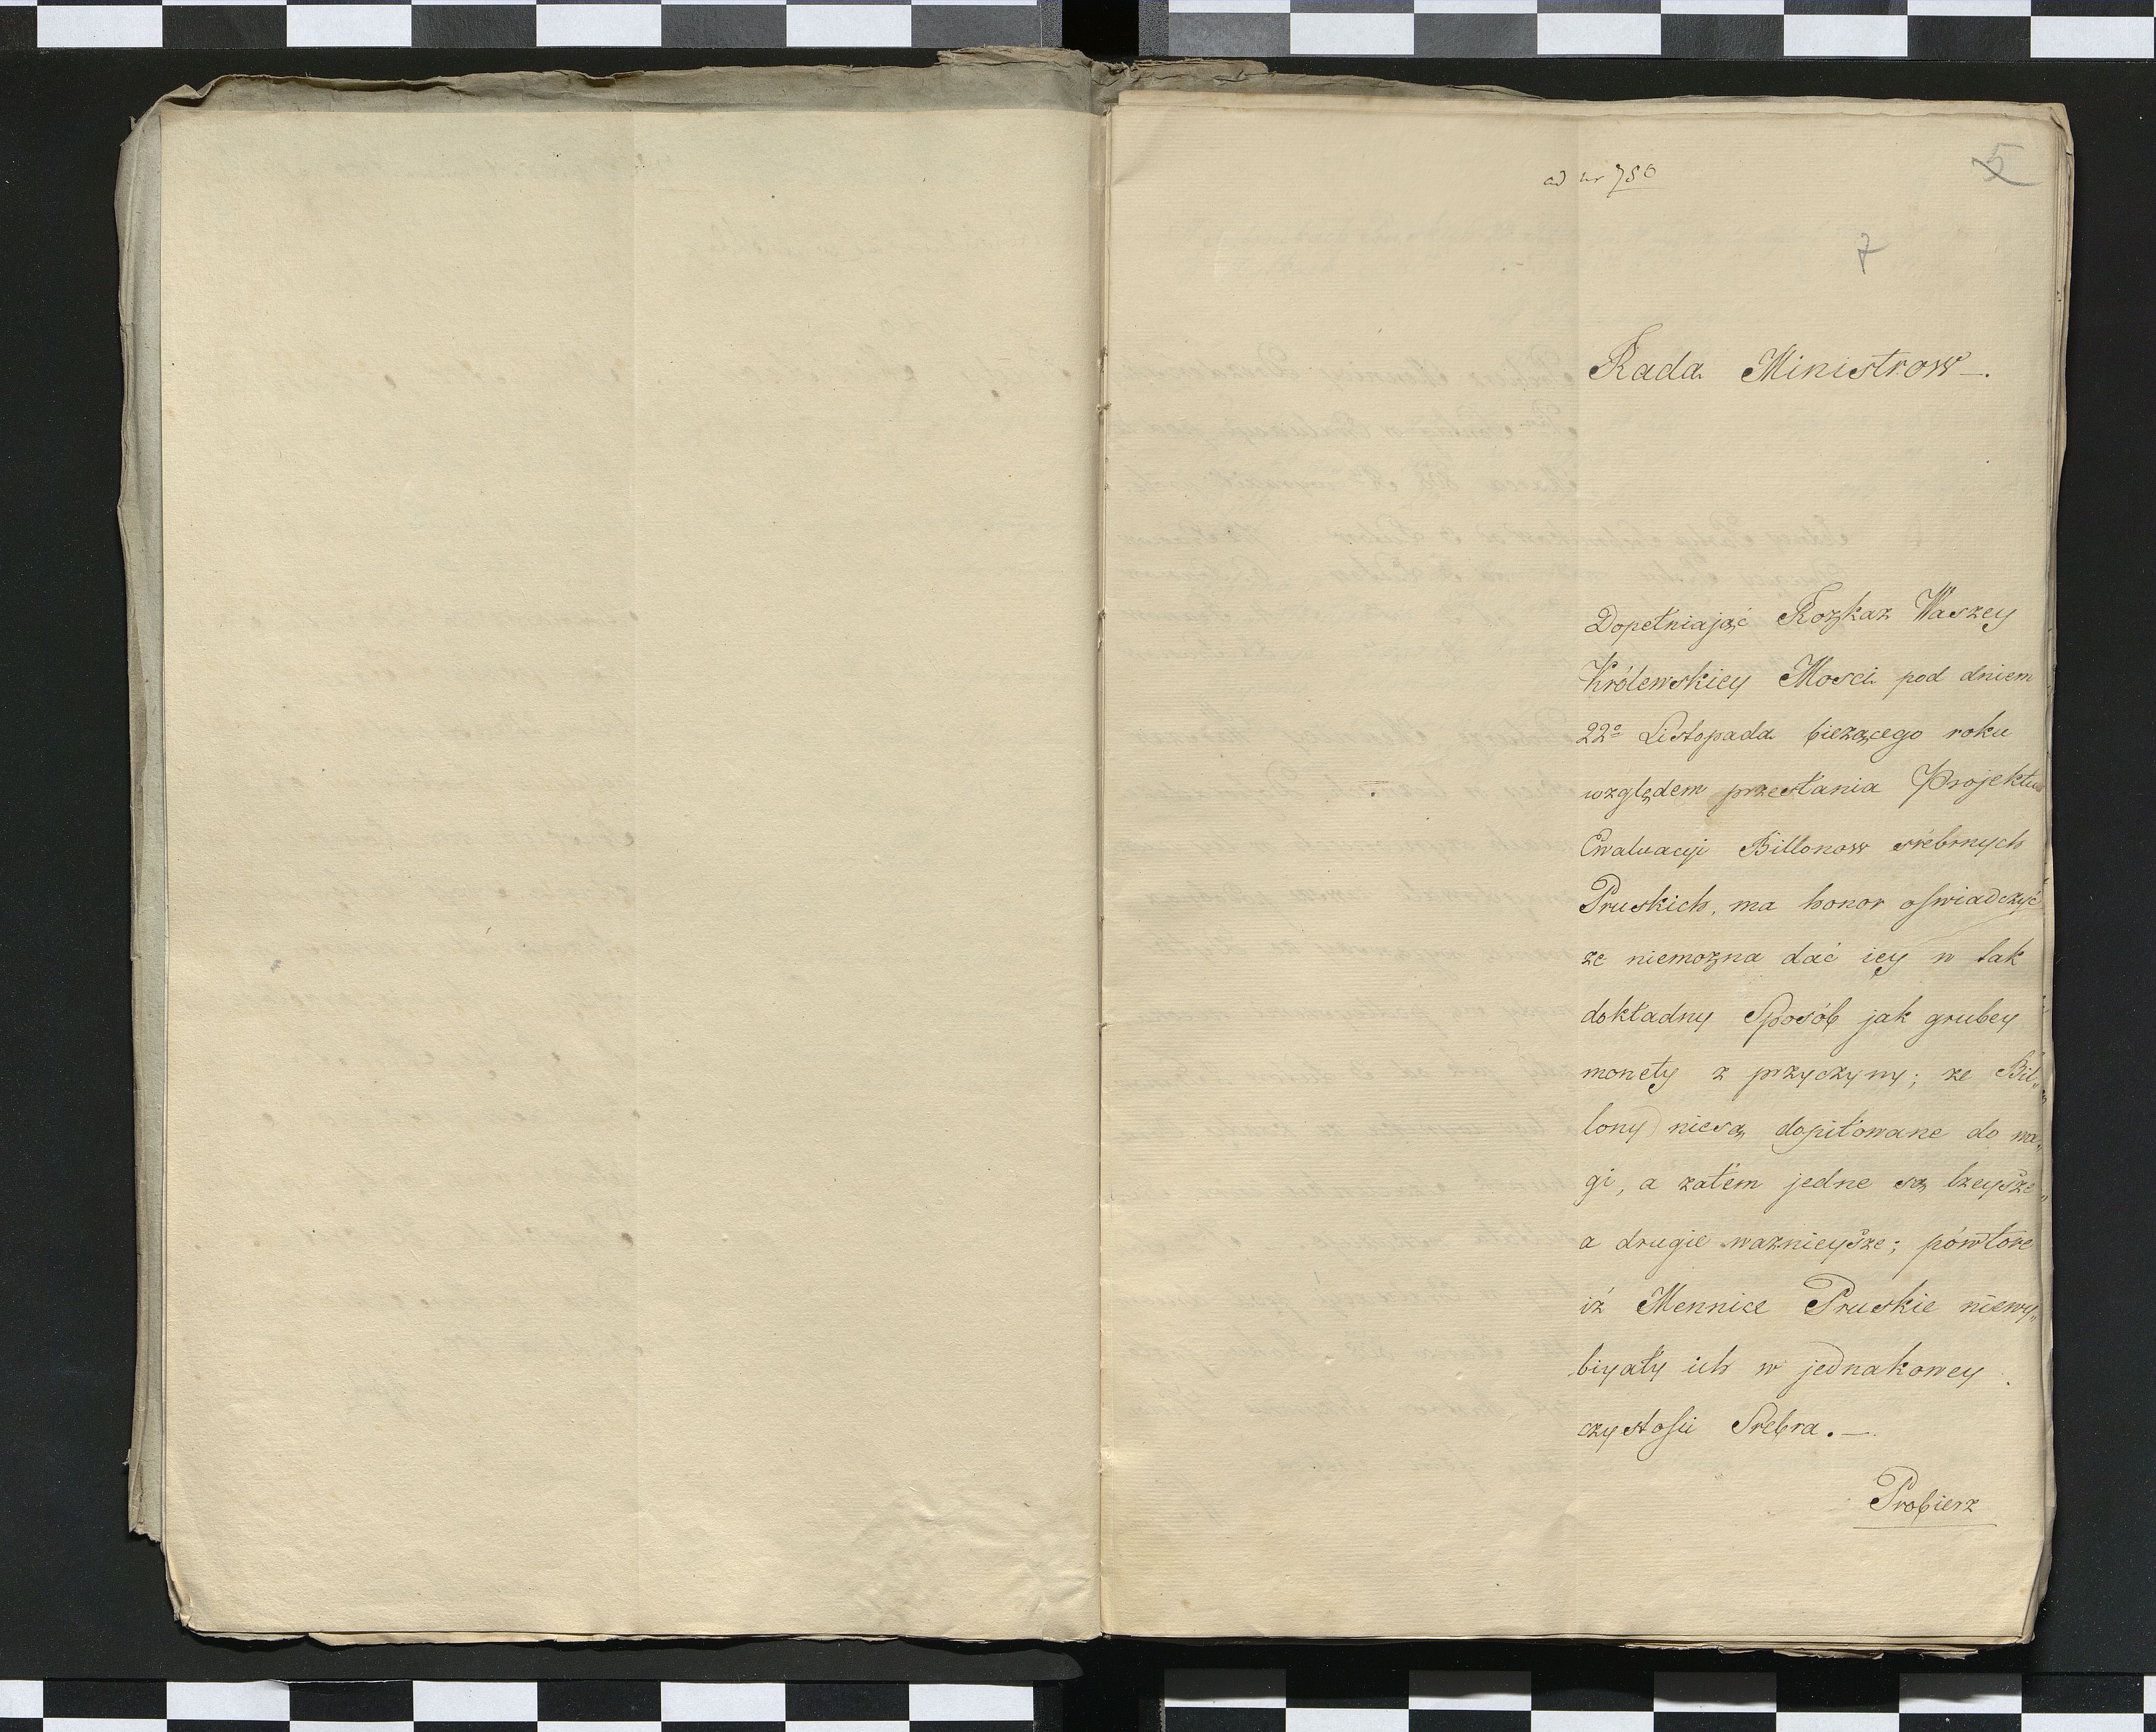 ad nr 750
5
7
Rada Ministrow —.
Dopełniając Rozkaz Waszey
Królewskiey Mosci pod dniem
22º Listopada bieżącego roku
względem przesłania Projektu
Ewaluacyi Billonow srebrnych
Pruskich, ma honor oswiadczyć
ze niemożna dać iey w tak
dokładny Sposób jak grubey
monety z przyczyny; ze Bil„
lony niesą dopiłowane do wa„
gi, a zatem jedne są lżeysze
a drugie waznieysze; powtóre
iż Mennice Pruskie niewy„
biyały ich w jednakowey
czystości Srebra. —
Probierz